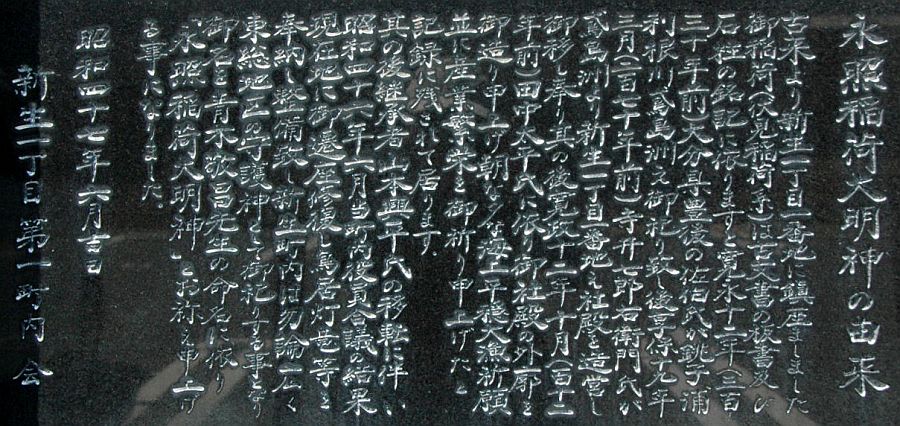 永照稲荷大明神の由来
古来より新生一丁目一番地に鎮座ましました
御稲荷(伏見稲荷系)は古文書の板書及び
石柱の銘記に依りますと寛永十二年(三百
三十年前)大分県豊後の佐伯氏が銚子浦
利根川 島洲え御札り致し後享保九年
三月(二百七十年前)寺井七郎右衛門氏が
 島洲より新生一丁目一番地え社殿を造営し
御移し奉り其の後寛政十二年十月(百十二
年前)田中大平氏に依り御社殿の外一廓を
御造り申し上げ朝な夕な海上平穏大漁祈願
並に産業繁栄を御祈り申上げたと
記録に残されて居ります。
其の後継承者山本興平氏の移転に伴い
昭和四十六年一月当町内役員合議の結果
現在地に御遷座修復し鳥居灯篭等を
奉納し整備致し新生町内は勿論広く
東総地区の守護神と御祀りする事となり
御名を青木敬昌先生の命名に依り
「永照稲荷大明神」とお称え申上げ
る事になりました。
昭和四十七年六月吉日
新生一丁目第一町内会